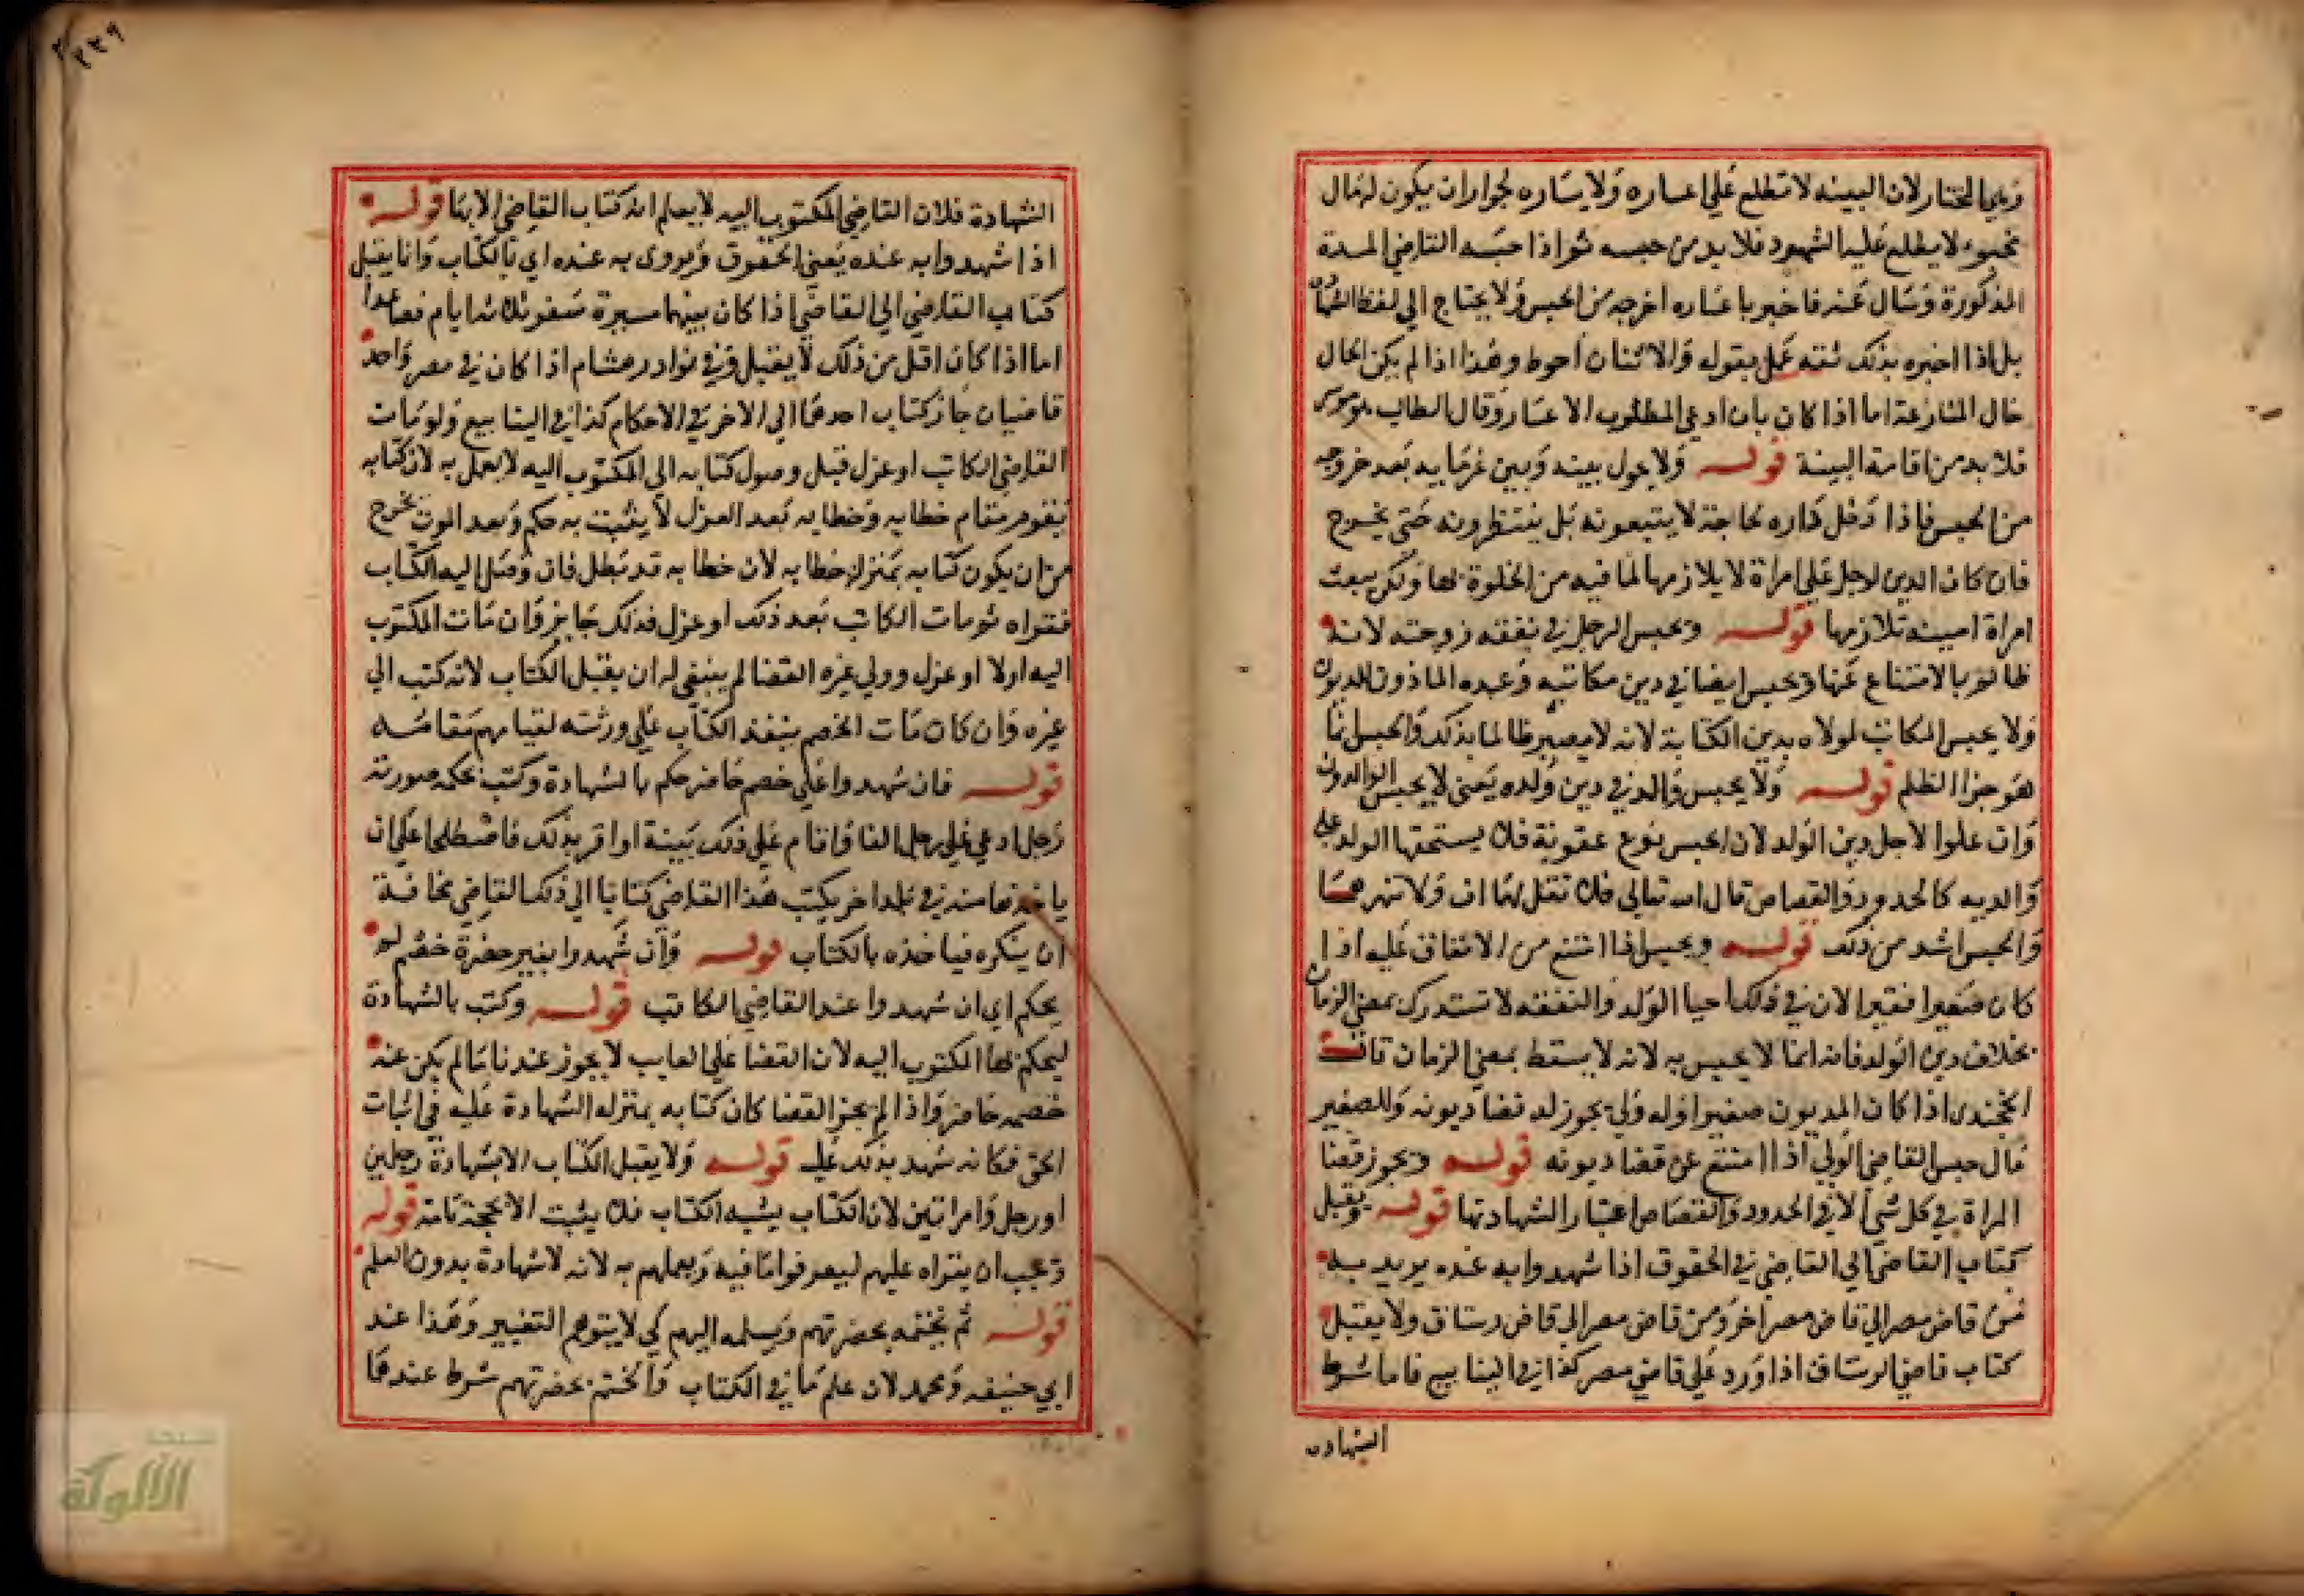 وعلى المختار لان البينه لا تطلع على اعساره ولا يساره لجواز ان يكون له مال
مخبو لا يطلع عليه الشهود فلا بد من حبسه ثم اذا حبسه القاضي المدة
المذكورة وسال عنه فاخبر باعساره اخرجه من الحبس ولا يحتاج الي لفظ الشهادة
بل اذا اخبره بذلك ثقه عمل بقوله والاثنان احوط وهذا اذا لم يكن الحال
حال المنازعة اما اذا كان بان ادعي المطلوب الاعسار وقال الطالب موسر
فلا بد من اقامة البينة قوله ولا يحول بينه وبين غرمايه بعد خروجه
من الحبس فاذا دخل داره لحاجته لا يتبعونه بل ينتظرونه حتى يخرج
فان كان الدين لرجل علي امراة لا يلازمها لما فيه من الخلوة بها ولكن يبعث
امراة امينة تلازمها قوله ويحبس الرجل في نفقة زوجته لانه
ظالم بالامتناع عنها ويحبس ايضا في دين مكاتبه وعبده الماذون المديون
ولا يحبس المكاتب لمولاه بدين الكتابة لانه لا يصير ظالما بذلك والحبس انما
هو جزا الظلم قوله ولا يحبس والد في دين ولده يعني لا يحبس الوالدون
وان علوا لاجل دين الولد لان الحبس نوع عقوبة فلا يستحقها الولد علي
والديه كالحدود والقصاص قال الله تعالى فلا تقل لهما اف ولا تنهرهما
والحبس اشد من ذلك قوله ويحبس اذا امتنع من الانفاق عليه اذا
كان صغيرا فقيرا لان في ذلك احيا الولد والنفقه لا تستدرك بمضي الزمان
بخلاف دين الولد فانه انما لا يحبس به لانه لا يسقط بمضي الزمان قال
الخجندي اذا كان المديون صغيرا وله ولي يجوز له قضا ديونه وللصغير
مال حبس القاضي الولي اذا امتنع عن قضا ديونه قوله ويجوز قضا
المراة في كل شي الا في الحدود والقصاص اعتبارا لشهادتها قوله ويقبل
كتاب القاضي الي القاضي في الحقوق اذا شهدوا به عنده يريد به
من قاض مصر الي قاض مصر اخر ومن قاض مصر الي قاض رستاق ولا يقبل
كتاب قاضي الرستاق اذا ورد علي قاضي مصر كذا في الينابيع فاما شرط
الشهاده
٢٣٩
الشهادة فلان القاضي المكتوب اليه لا يعلم انه كتاب القاضي الا بها قوله
اذا شهدوا به عنده يعني الحقوق ويروى به عنده اي بالكتاب وانما يقبل
كتاب القاضي الي القاضي اذا كان بينهما مسيرة سفر ثلاثه ايام فصاعدا
اما اذا كان اقل من ذلك لا يقبل وفي نوادر هشام اذا كان في مصر واحد
قاضيان جاز كتاب احدهما الي الاخر في الاحكام كذا في الينابيع ولو مات
القاضي الكاتب او عزل قبل وصول كتابه الي المكتوب اليه لا يعمل به لان كتابه
يقوم مقام خطابه وخطابه بعد العزل لا يثبت به حكم وبعد الموت يخرج
من ان يكون كتابه بمنزلة خطابه لان خطابه قد بطل فان وصل اليه الكتاب
فقراه ثم مات الكاتب بعد ذلك او عزل فذلك جايز وان مات المكتوب
اليه اولا او عزل وولي غيره القضا لم ينبغي له ان يقبل الكتاب لانه كتب الي
غيره وان كان مات الخصم ينفذ الكتاب علي ورثته لقيامهم مقامه
قوله فان شهدوا علي خصم حاضر حكم بالشهادة وكتب بحكمه صورته
رجل ادعي علي رجل الفا واقام علي ذلك بينة او اقر بذلك فاصطلحا علي ان
ياخذها منه في بلد اخر يكتب هذا القاضي كتابا الي ذلك القاضي مخافة
ان ينكره فياخذه بالكتاب قوله وان شهدوا بغير حضرة خصم لم
يحكم اي ان شهدوا عند القاضي الكاتب قوله وكتب بالشهادة
ليحكم بها المكتوب اليه لان القضا علي الغايب لا يجوز عندنا ما لم يكن عنه
خصم حاضر واذا لم يجز القضا كان كتابه بمنزله الشهادة عليه في اثبات
الحق فكانه شهد بذلك عليه قوله ولا يقبل الكتاب الا بشهادة رجلين
او رجل وامراتين لان الكتاب يشبه الكتاب فلا يثبت الا بحجة تامة قوله
ويجب ان يقراه عليهم ليعرفوا ما فيه ويعلمهم به لانه لا شهادة بدون العلم
قوله ثم يختمه بحضرتهم ويسلمه اليهم كي لا يتوهم التغيير وهذا عند
ابي حنيفه ومحمد لان علم ما في الكتاب والختم بحضرتهم شرط عندهما
الألوكة